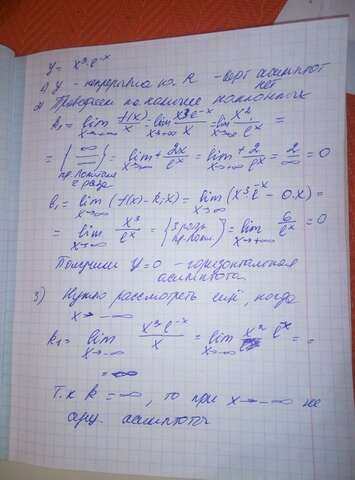 y = x³·e⁻ˣ
1) y - непрерывна на R - верт асимптот
нет
2) Проверяем на наличие наклонных
k₁ = lim x→+∞ f(x)/x = lim x→+∞ x³e⁻ˣ/x = lim x→+∞ x²/eˣ =
= {∞/∞ пр. Лопиталя 2 раза} = lim x→+∞ 2x/eˣ = lim x→+∞ 2/eˣ = 2/∞ = 0
b₁ = lim x→∞ (f(x) - k₁x) = lim x→∞ (x³e⁻ˣ - 0·x) =
= lim x→∞ x³/eˣ = {3 раза пр. Лопит.} = lim x→+∞ 6/eˣ = 0
Получили y=0 - горизонтальная
асимптота
3) Нужно рассмотреть ещё, когда
x→-∞
k₁ = lim x→-∞ x³e⁻ˣ/x = lim x→-∞ x² e⁻ˣ = =
= ∞
Т.к k = ∞, то при x→-∞ не
сущ. асимптоты